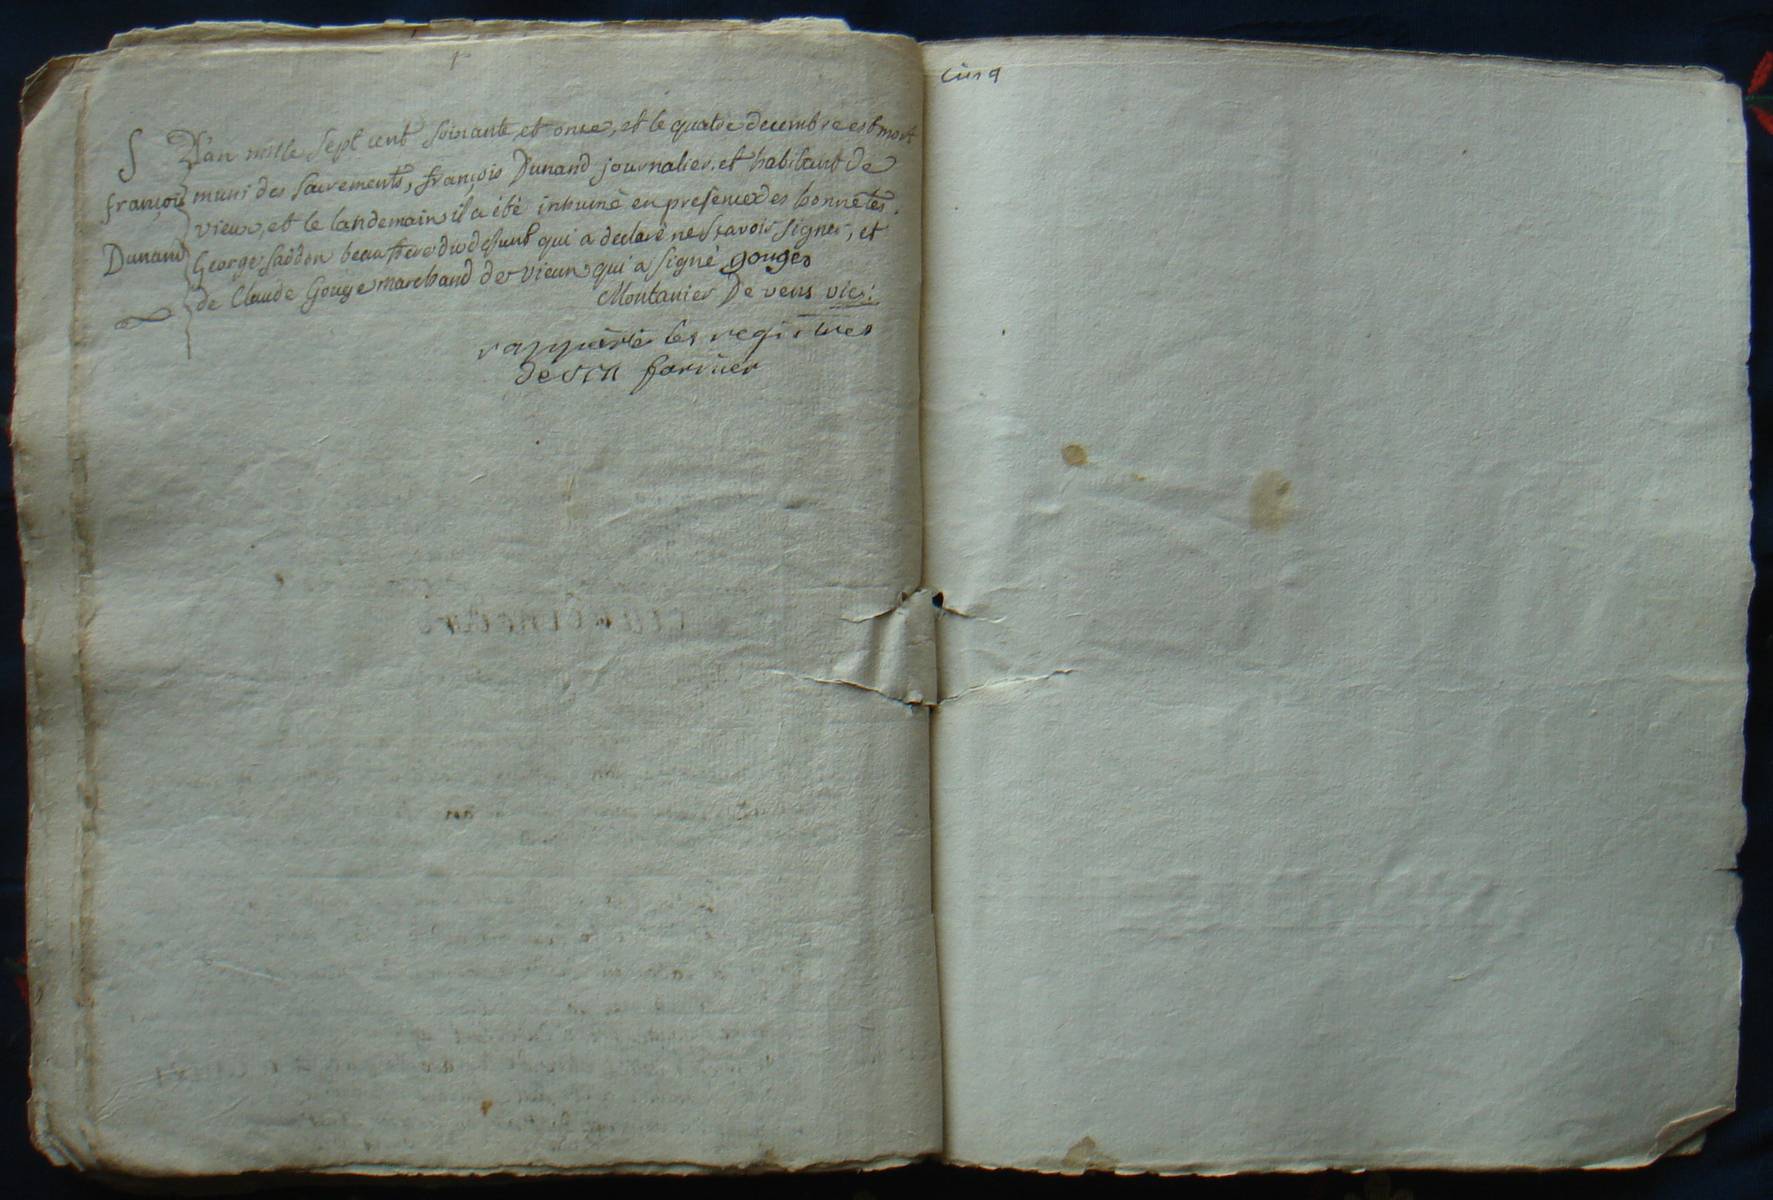 S
françois
Dunand
L'an mille sept cent soixante et onze, et le quatre decembre est mort
muni des sacrements, françois Dunand journalier et habitant de
vieux, et le landemain il a été inhumé en presence des honnêtes
George beaufrere du defunt qui a declaré ne scavoir signer, et
de Claude Gouge marchand de vieux qui a signé gouges
Montanier De vens vic:
les registres
cinq